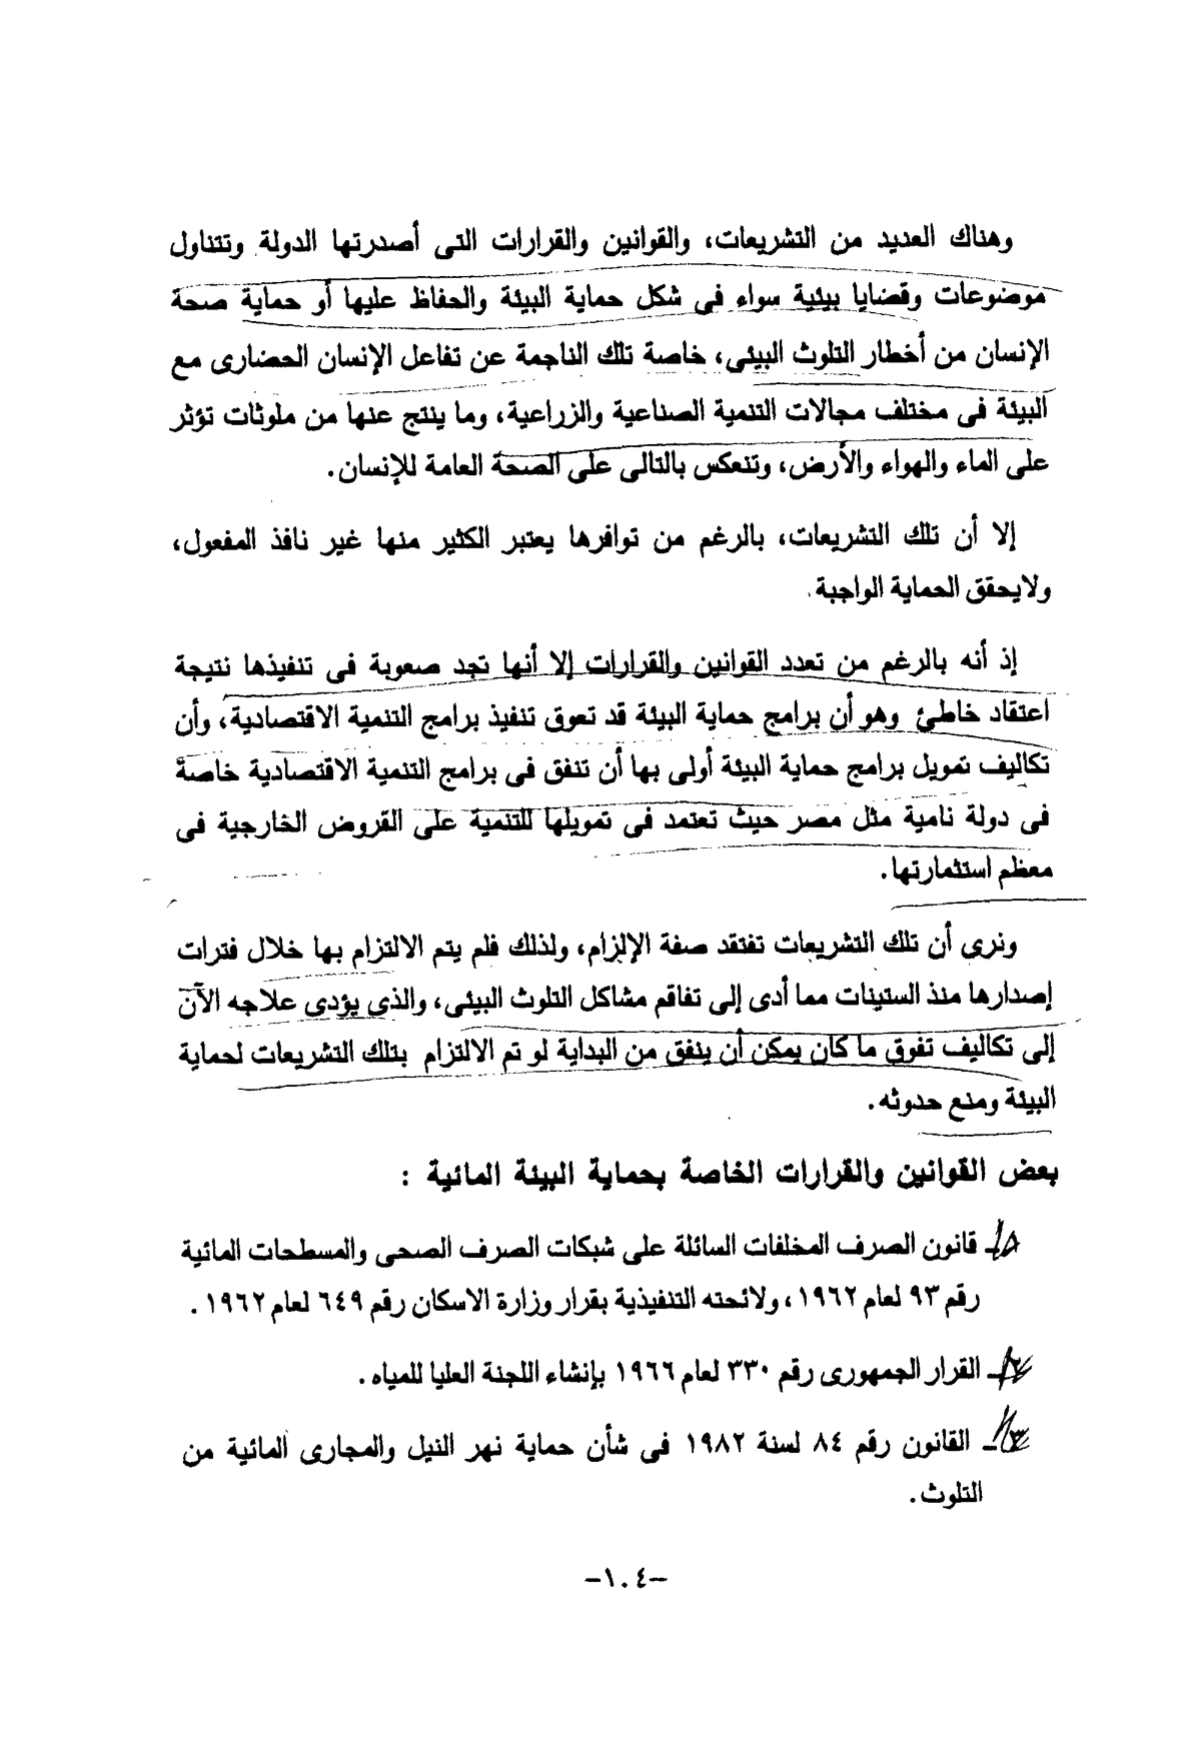 وهناك العديد من التشريعات، والقوانين والقرارات التى أصدرتها الدولة وتتناول
موضوعات وقضايا بيئية سواء فى شكل حماية البيئة والحفاظ عليها أو حماية صحة
الإنسان من أخطار التلوث البيئى، خاصة تلك الناجمة عن تفاعل الإنسان الحضارى مع
البيئة فى مختلف مجالات التنمية الصناعية والزراعية، وما ينتج عنها من ملوثات تؤثر
على الماء والهواء والأرض، وتنعكس بالتالى على الصحة العامة للإنسان.
إلا أن تلك التشريعات، بالرغم من توافرها يعتبر الكثير منها غير نافذ المفعول،
ولايحقق الحماية الواجبة.
إذ أنه بالرغم من تعدد القوانين والقرارات إلا أنها تجد صعوبة فى تنفيذها نتيجة
اعتقاد خاطئ وهو أن برامج حماية البيئة قد تعوق تنفيذ برامج التنمية الاقتصادية، وأن
تكاليف تمويل برامج حماية البيئة أولى بها أن تنفق فى برامج التنمية الاقتصادية خاصة
فى دولة نامية مثل مصر حيث تعتمد فى تمويلها للتنمية على القروض الخارجية فى
معظم استثمارتها.
ونرى أن تلك التشريعات تفتقد صفة الإلزام، ولذلك فلم يتم الالتزام بها خلال فترات
إصدارها منذ الستينات مما أدى إلى تفاقم مشاكل التلوث البيئى، والذى يؤدى علاجه الآن
إلى تكاليف تفوق ما كان يمكن أن ينفق من البداية لو تم الالتزام بتلك التشريعات لحماية
البيئة ومنع حدوثه.
بعض القوانين والقرارات الخاصة بحماية البيئة المائية :
١ـ قانون الصرف المخلفات السائلة على شبكات الصرف الصحى والمسطحات المائية
رقم ٩٣ لعام ١٩٦٢، ولائحته التنفيذية بقرار وزارة الاسكان رقم ٦٤٩ لعام ١٩٦٢.
٢ـ القرار الجمهورى رقم ٣٣٠ لعام ١٩٦٦ بإنشاء اللجنة العليا للمياه.
٣ـ القانون رقم ٨٤ لسنة ١٩٨٢ فى شأن حماية نهر النيل والمجارى المائية من
التلوث.
-١٠٤-